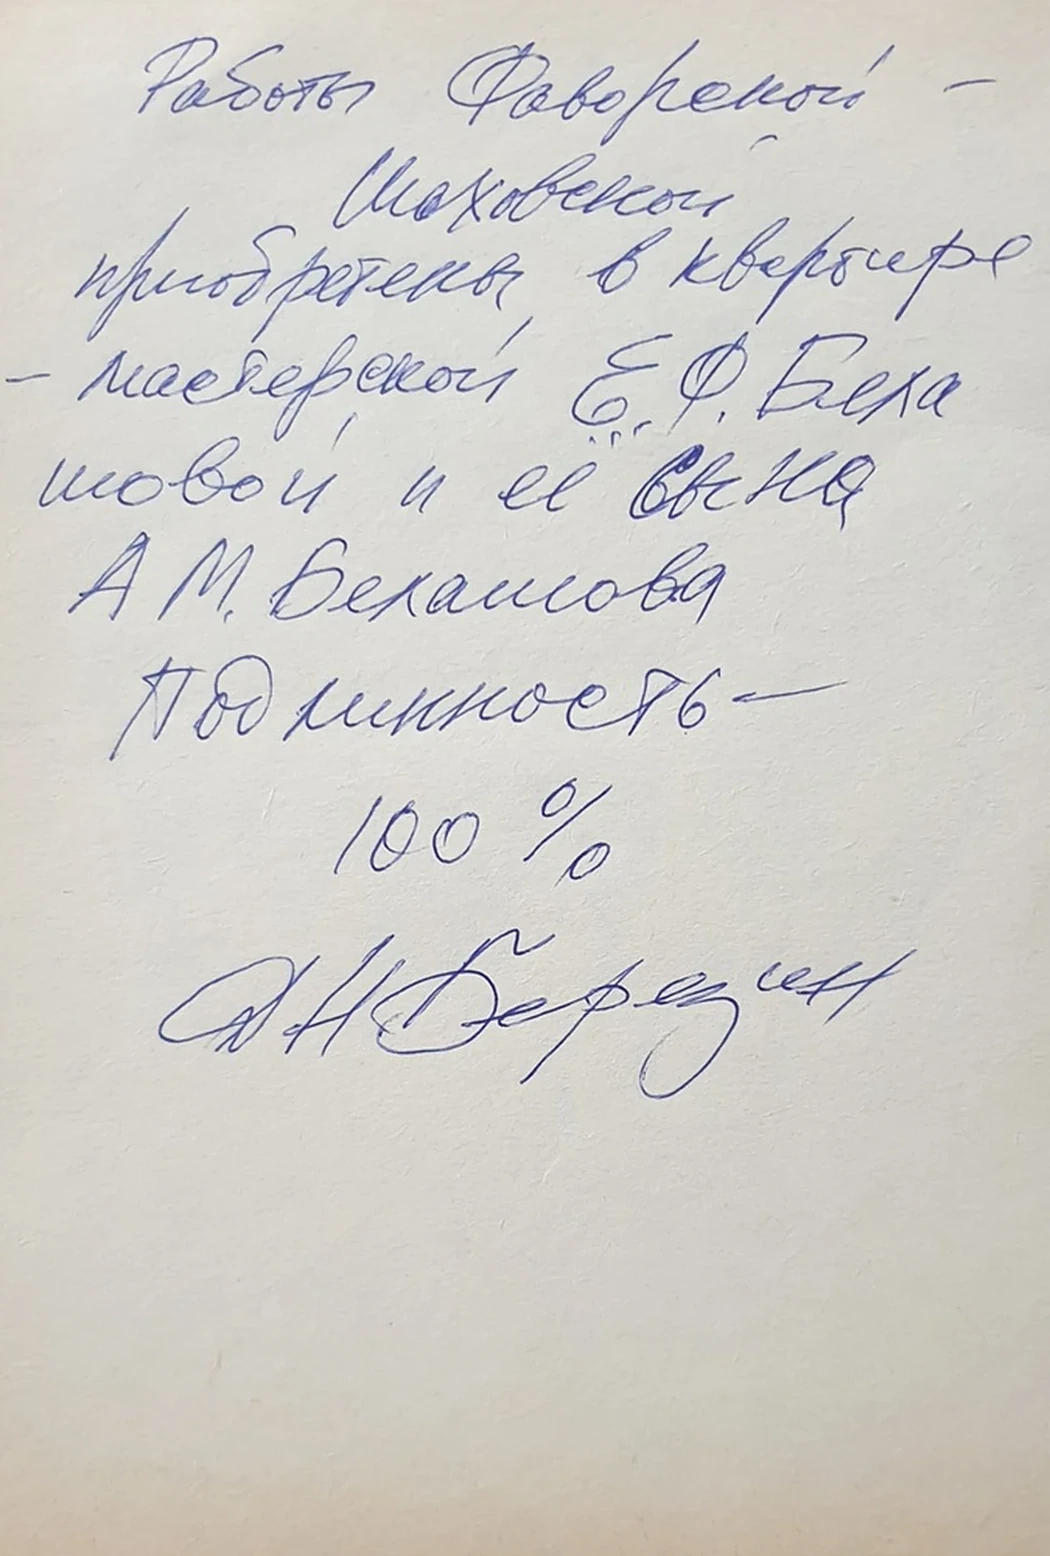 Работы Фаворской -
Шаховской
приобретены в квартире
- мастерской Е.Ф. Бела
шовой и её сына
А М. Белашова
Подлинность —
100 %
ДН Березин